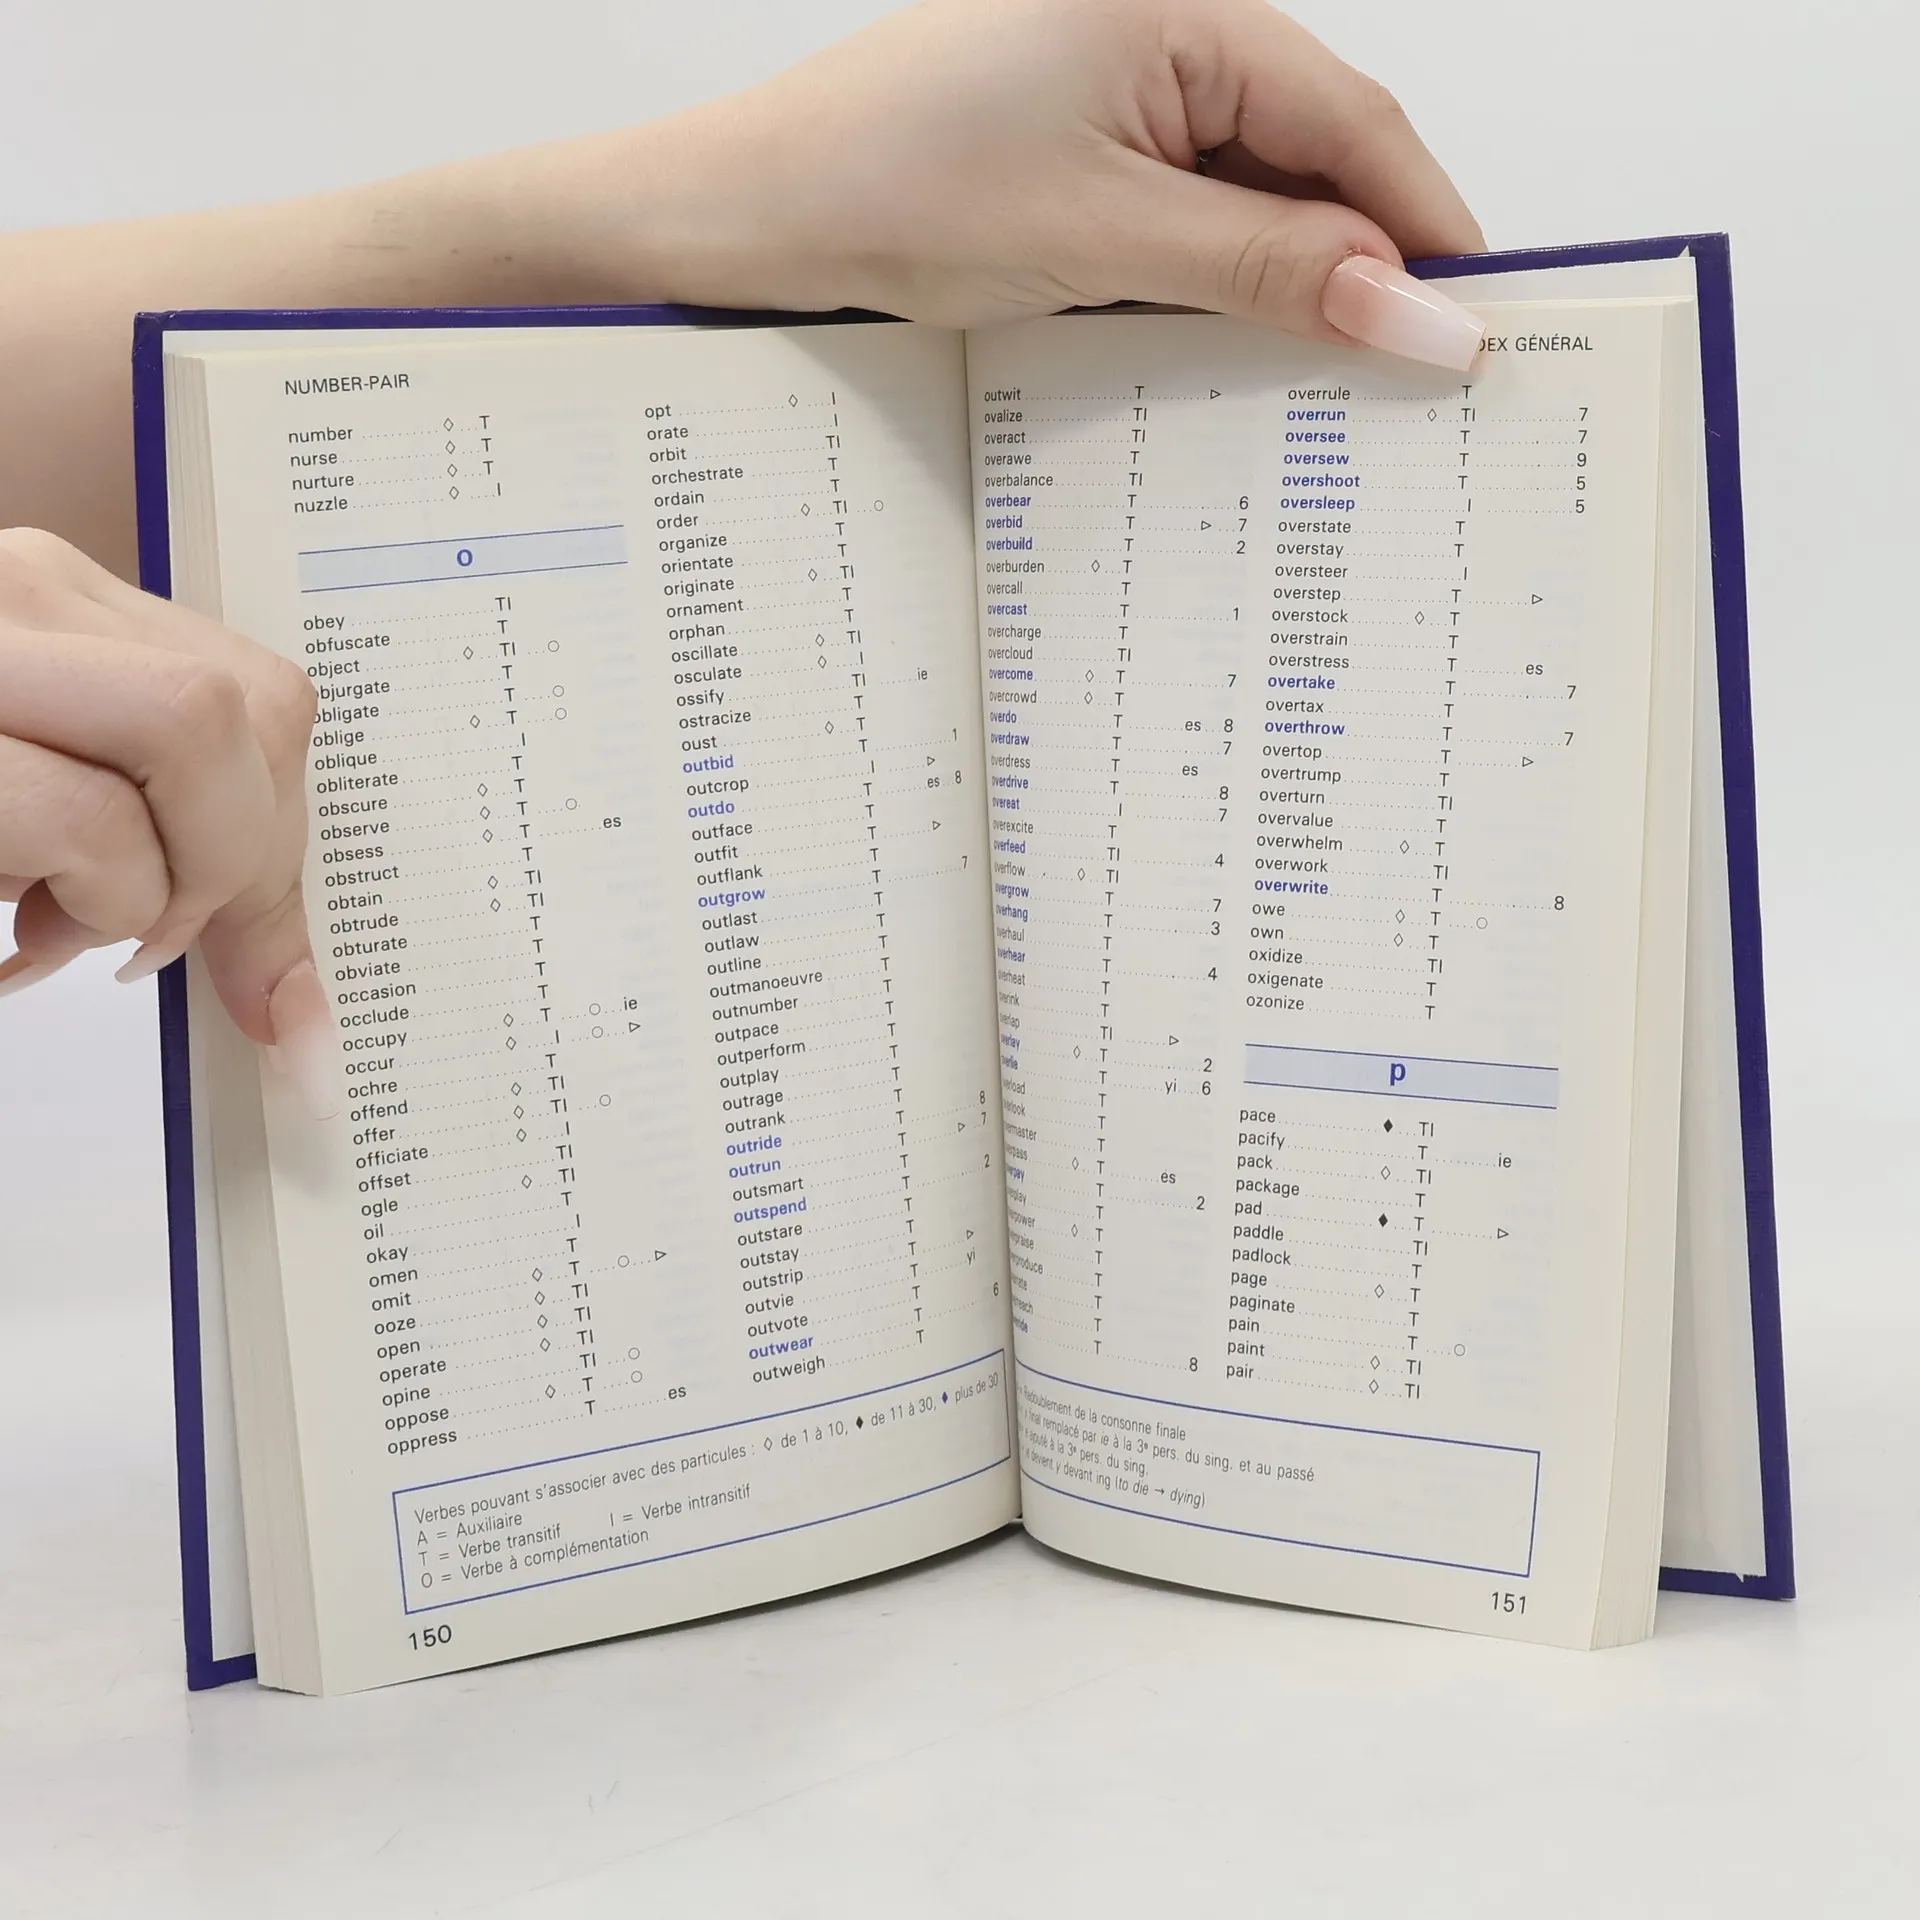 NUMBER-PAIR
number ◊ T
nurse ◊ T
nurture ◊ T
nuzzle ◊ I
o
obey TI
obfuscate T
object ◊ TI ○
objurgate T
obligate T ○
oblige ◊ T ○
oblique I
obliterate T
obscure ◊ T
observe ◊ T ○
obsess ◊ T es
obstruct T
obtain ◊ TI
obtrude ◊ TI
obturate T
obviate T
occasion T
occlude T
occupy ◊ T ○ ie
occur ◊ I ○ ▷
ochre T
offend ◊ TI
offer ◊ TI ○
officiate ◊ I
offset TI
ogle ◊ TI
oil T
okay I
omen T
omit ◊ T ○ ▷
ooze ◊ TI
open ◊ TI
operate ◊ TI
opine TI ○
oppose ◊ T ○
oppress T es
opt ◊ I
orate I
orbit TI
orchestrate T
ordain T
order ◊ TI ○
organize T
orientate T
originate ◊ TI
ornament T
orphan T
oscillate ◊ TI
osculate ◊ I
ossify TI ie
ostracize T
oust ◊ T
outbid T 1
outcrop I ▷
outdo T es 8
outface T
outfit T ▷
outflank T
outgrow T 7
outlast T
outlaw T
outline T
outmanoeuvre T
outnumber T
outpace T
outperform T
outplay T
outrage T
outrank T
outride T 8
outrun T ▷ 7
outsmart T
outspend T 2
outstare T
outstay T
outstrip T ▷
outvie T yi
outvote T
outwear T 6
outweigh T
Verbes pouvant s'associer avec des particules : ◊ de 1 à 10, ♦ de 11 à 30, ♦ plus de 30
A = Auxiliaire
T = Verbe transitif I = Verbe intransitif
O = Verbe à complémentation
150
DEX GÉNÉRAL
outwit T ▷
ovalize TI
overact TI
overawe T
overbalance TI
overbear T 6
overbid T ▷ 7
overbuild T 2
overburden ◊ T
overcall T
overcast T 1
overcharge T
overcloud TI
overcome ◊ T 7
overcrowd ◊ T
overdo T es 8
overdraw T 7
overdress T es
overdrive T 8
overeat I 7
overexcite T
overfeed TI 4
overflow ◊ TI
overgrow T 7
overhang T 3
overhaul T
overhear T 4
overheat T
overink T
overlap TI ▷
overlay ◊ T 2
overlie T yi 6
overload T
overlook T
overmaster T
overpass ◊ T es
overpay T 2
overplay T
overpower ◊ T
T
T
T
T
T
T 8
overrule T
overrun ◊ TI 7
oversee T 7
oversew T 9
overshoot T 5
oversleep I 5
overstate T
overstay T
oversteer I
overstep T ▷
overstock ◊ T
overstrain T
overstress T es
overtake T 7
overtax T
overthrow T 7
overtop T ▷
overtrump T
overturn TI
overvalue T
overwhelm ◊ T
overwork TI
overwrite T 8
owe ◊ T ○
own ◊ T
oxidize TI
oxigenate T
ozonize T
p
pace ♦ TI
pacify T ie
pack ◊ TI
package T
pad ♦ T ▷
paddle TI
padlock T
page ◊ T
paginate T
pain T ○
paint ◊ TI
pair ◊ TI
Redoublement de la consonne finale
final remplacé par ie à la 3e pers. du sing. et au passé
à la 3e pers. du sing.
devient y devant ing (to die → dying)
151